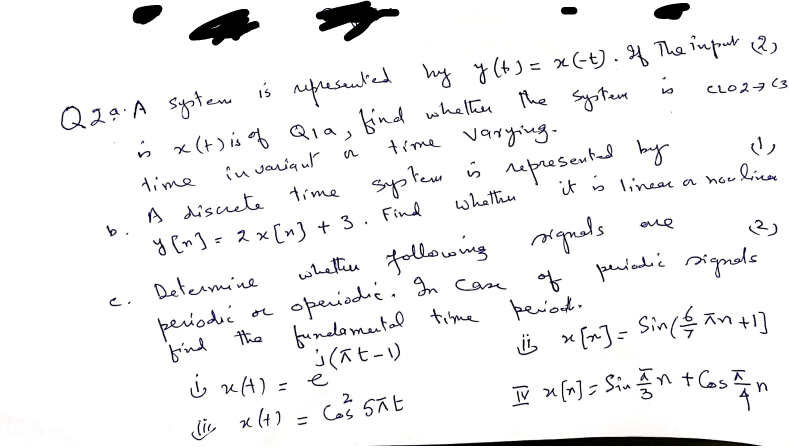 Q2a. A system is represented by y(t) = x(-t). If The input (2)
is x(t) is of Q1a, find whether the system is CLO2→C3
time invariant or time varying.
b. A discrete time system is represented by (1)
y[n] = 2x[n] + 3. Find whether it is linear or non linear
c. Determine whether following signals are (2)
periodic or aperiodic. In Case of periodic signals
find the fundamental time period.
i) x(t) = e^{j(πt-1)} ii) x[n] = Sin(6/7 πn + 1]
iii) x(t) = Cos² 5πt IV x[n] = Sin π/3 n + Cos π/4 n